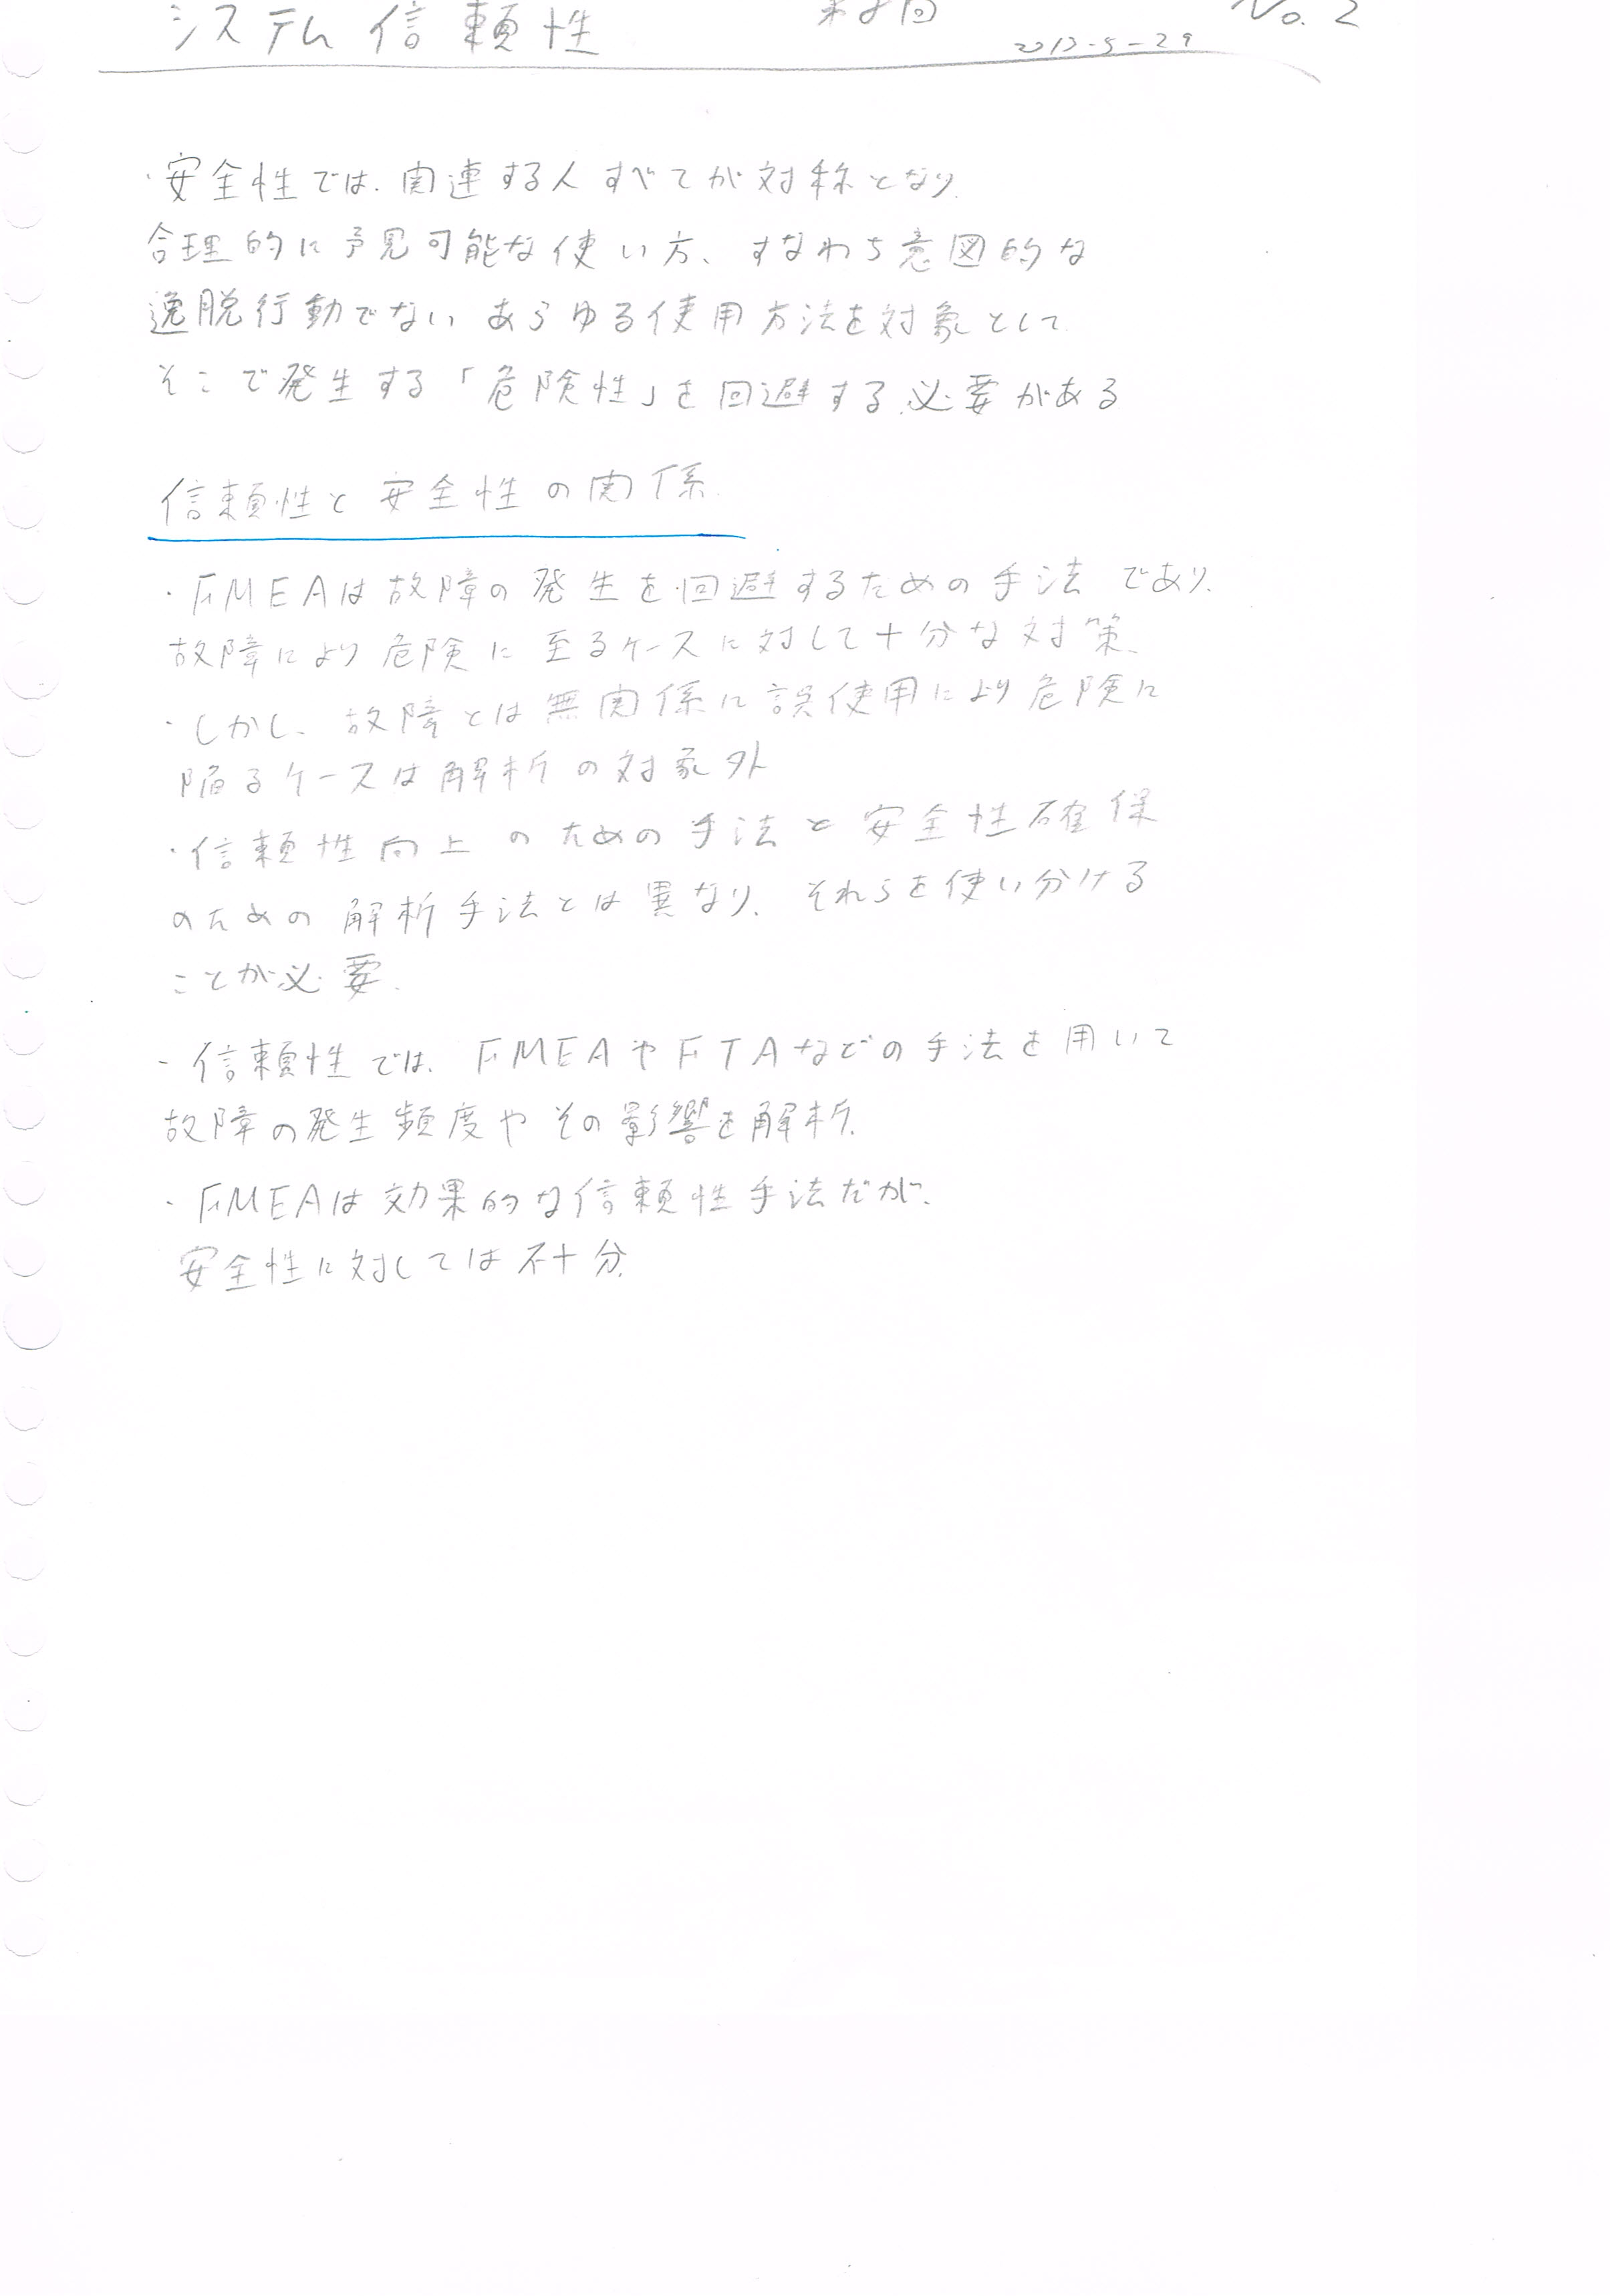 システム信頼性 第8回 No. 2
2013-5-29
・安全性では、関連する人すべてが対称となり、
合理的に予見可能な使い方、すなわち意図的な
逸脱行動でないあらゆる使用方法を対象として
そこで発生する「危険性」を回避する必要がある
信頼性と安全性の関係
・FMEAは故障の発生を回避するための手法であり、
故障により危険に至るケースに対して十分な対策、
・しかし、故障とは無関係に誤使用により危険に
陥るケースは解析の対象外
・信頼性向上のための手法と安全性確保
のための解析手法とは異なり、それらを使い分ける
ことが必要.
- 信頼性では、FMEAやFTAなどの手法を用いて
故障の発生頻度やその影響を解析.
・FMEAは効果的な信頼性手法だが、
安全性に対しては不十分.